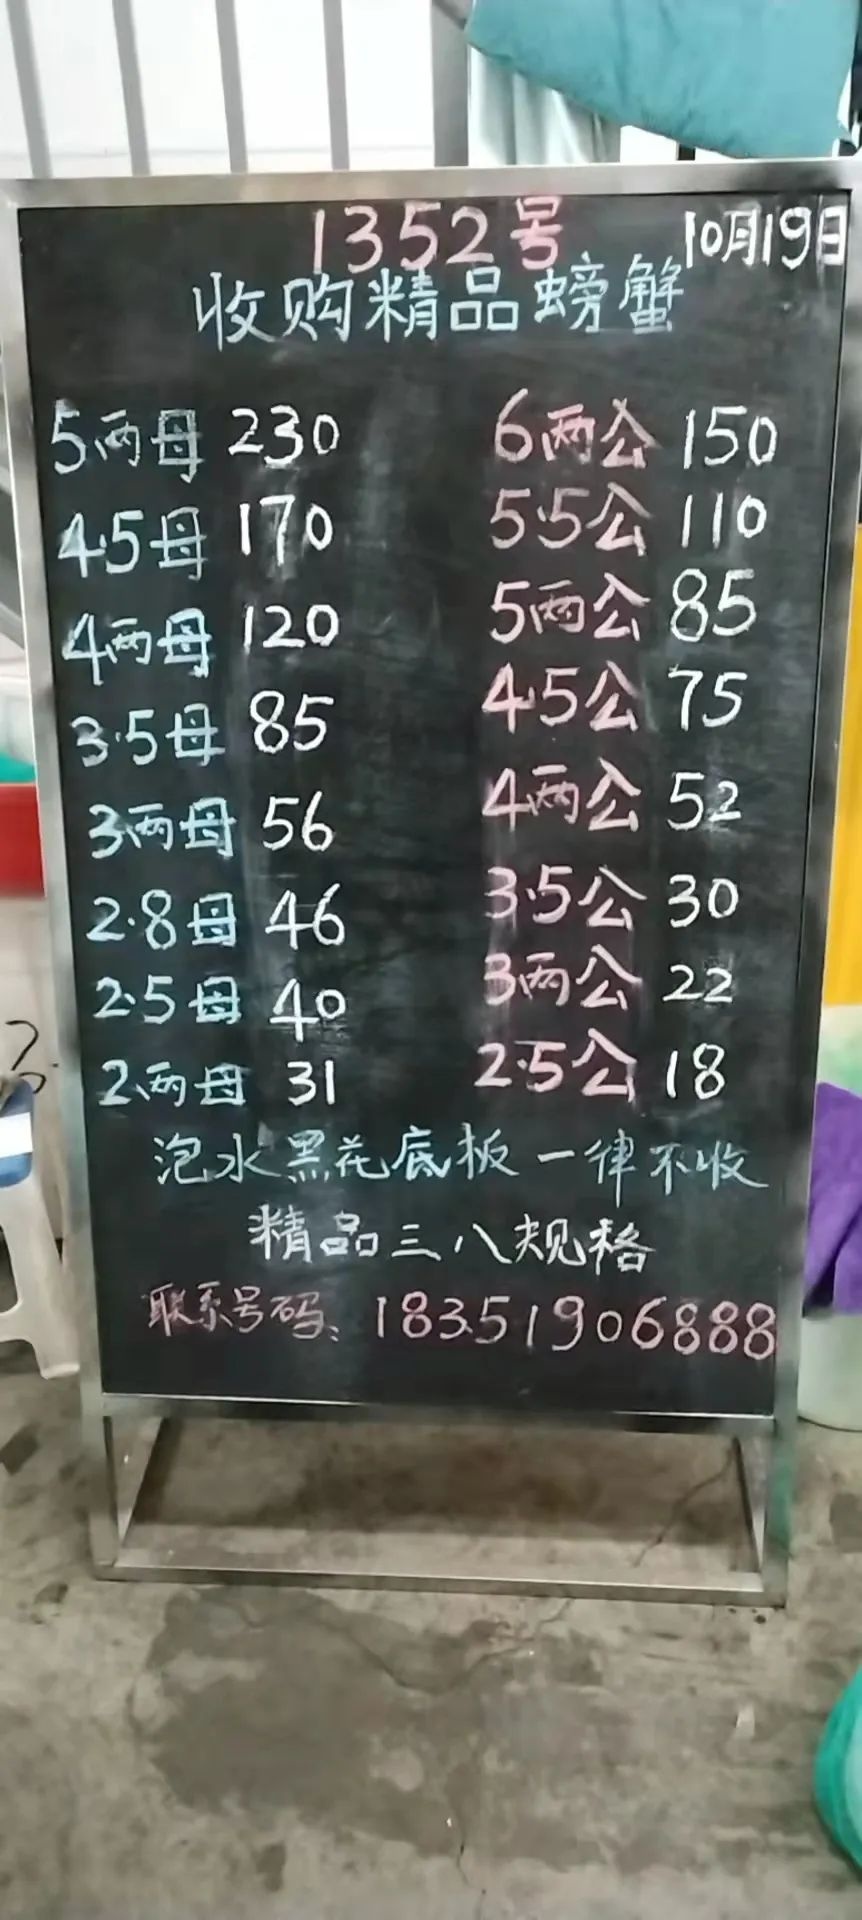 1352号 10月19日
收购精品螃蟹
5两母 230 6两公 150
4.5母 170 5.5公 110
4两母 120 5两公 85
3.5母 85 4.5公 75
3两母 56 4两公 52
2.8母 46 3.5公 30
2.5母 40 3两公 22
2两母 31 2.5公 18
泡水黑花底板一律不收
精品三八规格
联系号码：18351906888